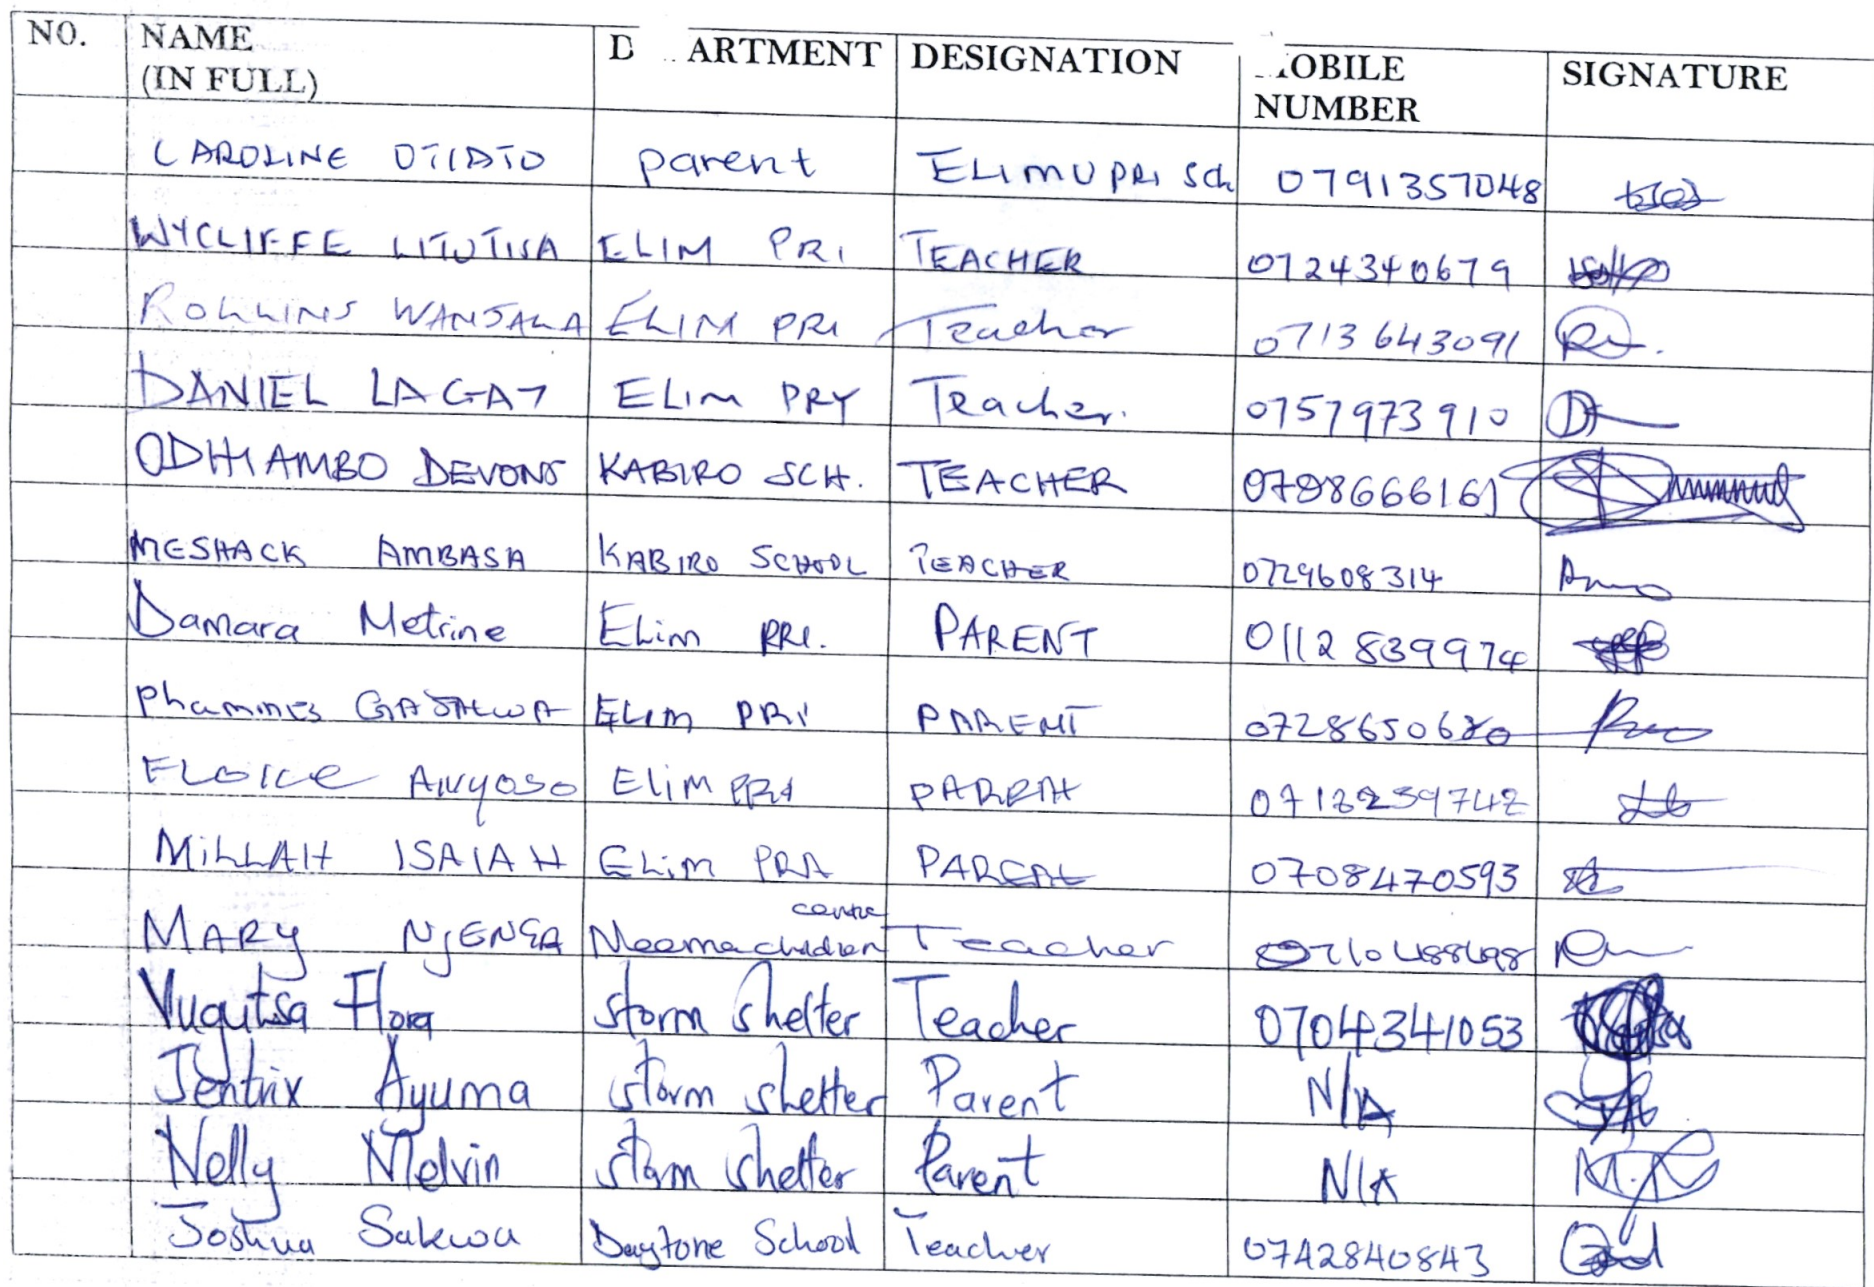 NO. NAME (IN FULL) D ARTMENT DESIGNATION MOBILE NUMBER SIGNATURE
CAROLINE OTIATO parent ELIMU PRI Sch 0791357048
WYCLIFFE LITUTISA ELIM PRI TEACHER 0724340679
ROLLINS WANJALA ELIM PRI Teacher 0713643091
DANIEL LAGAT ELIM PRY Teacher. 0757973910
ODHIAMBO DEVONS KABIRO SCH. TEACHER 0798666161
MESHACK AMBASA KABIRO SCHOOL TEACHER 0729608314
Damara Metrine Elim PRI. PARENT 0112839974
Phamines ELIM PRI PARENT
ELOICE ANYOSO Elim PRI PARENT
MILLAH ISAIAH ELIM PRI PARENT 0708470593
MARY NJENGA Neema children centre Teacher
Vugutsa Flora storm shelter Teacher 0704341053
Jentrix Ayuma storm shelter Parent N/A
Nelly Melvin storm shelter Parent N/A
Joshua Sakwa Daytone School Teacher 0742840843